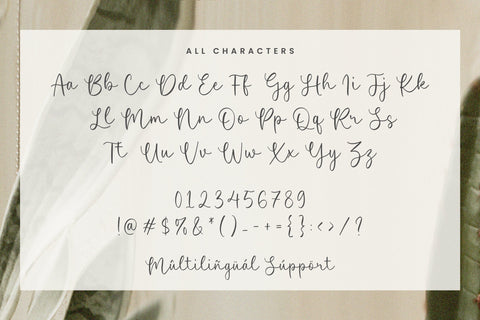 ALL CHARACTERS
Aa Bb Cc Dd Ee Ff Gg Hh Ii Jj Kk
Ll Mm Nn Oo Pp Qq Rr Ss
Tt Uu Vv Ww Xx Yy Zz
0123456789
!@#$%&*()_-+={}:<>/?
Múltiliñgüál Súppört